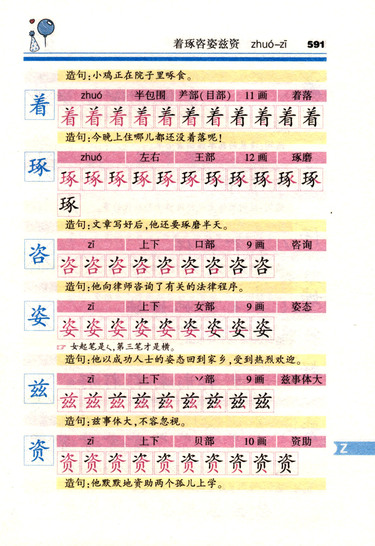 着琢咨姿兹资 zhuó-zī 591
造句:小鸡正在院子里啄食。
着
zhuó 半包围 羊部(目部) 11画 着落
着着着着着着着着着着着
造句:今晚上住哪儿都还没着落呢!
琢
zhuó 左右 王部 12画 琢磨
琢琢琢琢琢琢琢琢琢琢琢
琢
造句:文章写好后,他还要琢磨半天。
咨
zī 上下 口部 9画 咨询
咨咨咨咨咨咨咨咨咨
造句:他向律师咨询了有关的法律程序。
姿
zī 上下 女部 9画 姿态
姿姿姿姿姿姿姿姿姿
女起笔是ㄑ,第三笔才是横。
造句:他以成功人士的姿态回到家乡,受到热烈欢迎。
兹
zī 上下 丷部 9画 兹事体大
兹兹兹兹兹兹兹兹兹
造句:兹事体大,不容忽视。
资
zī 上下 贝部 10画 资助
资资资资资资资资资资
Z
造句:他默默地资助两个孤儿上学。